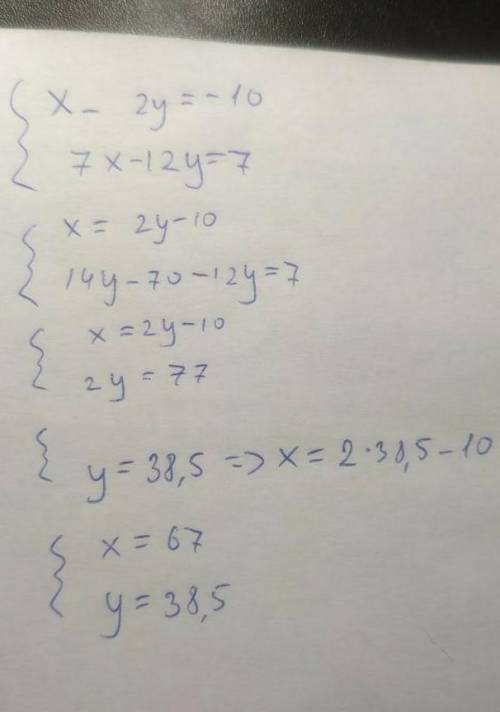 x - 2y = -10
7x - 12y = 7
x = 2y - 10
14y - 70 - 12y = 7
x = 2y - 10
2y = 77
y = 38,5 => x = 2·38,5 - 10
x = 67
y = 38,5